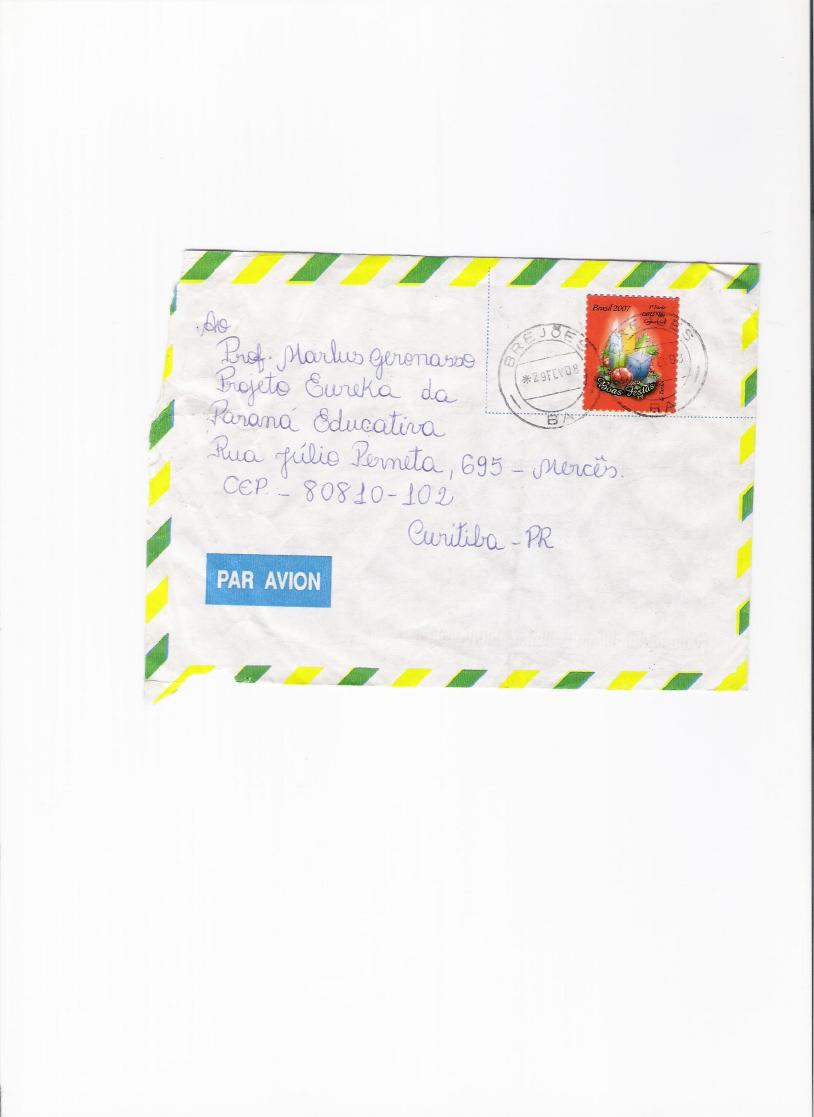 Ao
Prof. Marlus Geronasso
Projeto Eureka da
Paraná Educativa
Rua Júlio Perneta, 695 - Mercês.
CEP. - 80810-102
Curitiba - PR
PAR AVION
Brasil 2007
Boas Festas
BREJÕES
BA
BA